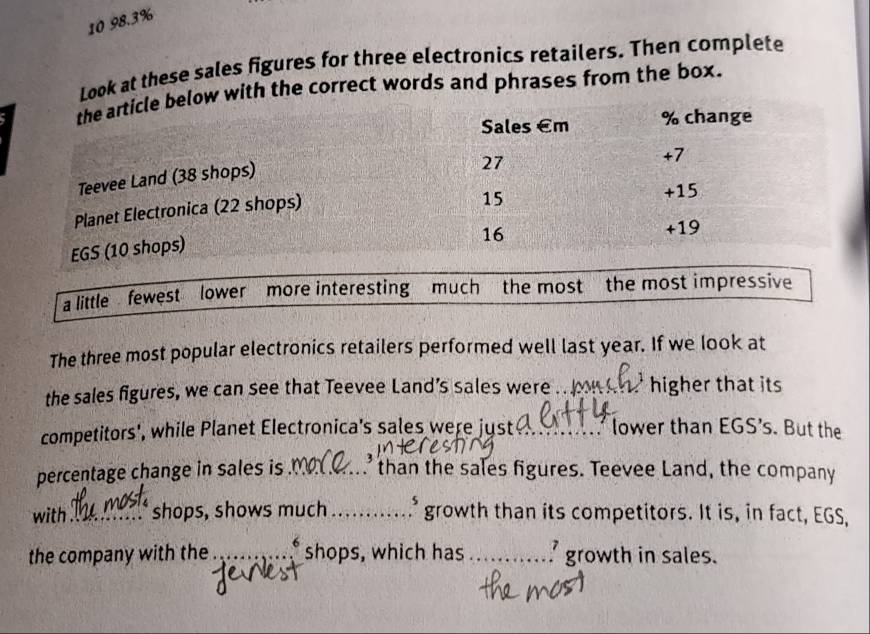 10 98.3%
Look at these sales figures for three electronics retailers. Then complete
the article below with the correct words and phrases from the box.
Sales €m % change
Teevee Land (38 shops) 27 +7
Planet Electronica (22 shops) 15 +15
EGS (10 shops) 16 +19
a little fewest lower more interesting much the most the most impressive
The three most popular electronics retailers performed well last year. If we look at
the sales figures, we can see that Teevee Land's sales were ..much..¹ higher that its
competitors', while Planet Electronica's sales were just a little² lower than EGS's. But the
interesting
percentage change in sales is ..more...³ than the sales figures. Teevee Land, the company
with ..the most..⁴ shops, shows much ............⁵ growth than its competitors. It is, in fact, EGS,
the company with the ............⁶ shops, which has ............⁷ growth in sales.
fewest the most